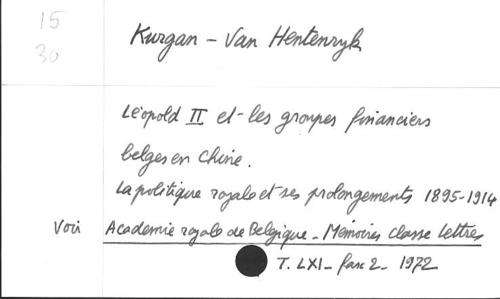 15
30
Kurgan - Van Hentenryk
Léopold II et les groupes financiers
belges en Chine.
La politique royale et ses prolongements 1895-1914
Voir Académie royale de Belgique - Mémoires Classe Lettres
T. LXI - fasc 2 - 1972